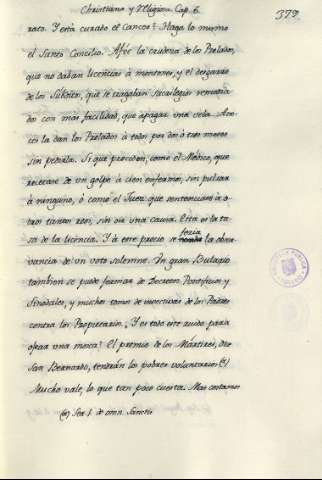 Christiano y Religioso Cap. 6.
379
rata. Y está curado el Cancer? Haga lo mismo
el Santo Concilio. Afee la cordura de los Prelados,
que no daban licencias à montones, y el desgarro
de los Subditos, que se tragaban Sacrilegios remedia-
dos con mas facilidad, que apagar una vela. Aon-
ces la dan los Prelados à todos por dos ò tres meses
sin pedirla. Si que proceden, como el Medico, que
recetase de un golpe à cien enfermos, sin pulsar
à ninguno, ò como el Juez que sentenciase à o-
tros tantos reos, sin oir una causa. Esta es la ta-
sa de la licencia. Y à este precio se feria la obser-
vancia de un voto solemne. Un gran
tambien se puede formar de Decretos Pontificios y
Sinodales, y muchos tomos de invectivas de los Padres
contra los Propietarios. Y es todo este ruido para
ojear una mosca? El premio de los Martires, dice
San Bernardo, tendràn los pobres voluntarios
Mucho vale, lo que tan poco cuesta. Mas costamos
Ser. 1. de omn. Sanctis